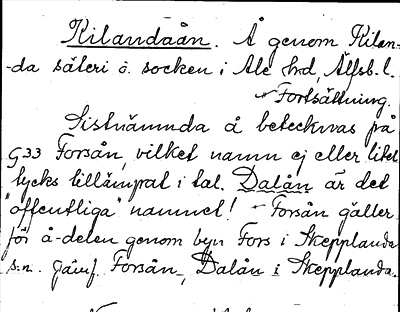 Kilandaån. Å genom Kilan-
-da säteri o. socken i Ale hrd, Älfsb. l.
Fortsättning.
Sistnämnda å betecknas på
G33 Forsån, vilket namn ej eller litet
tycks tillämpat i tal. Dalån är det
"öffentliga" namnet! - Forsån gäller
för å-delen genom byn Fors i Skepplanda
s:n. Jämf. Forsån, Dalån i Skepplanda.